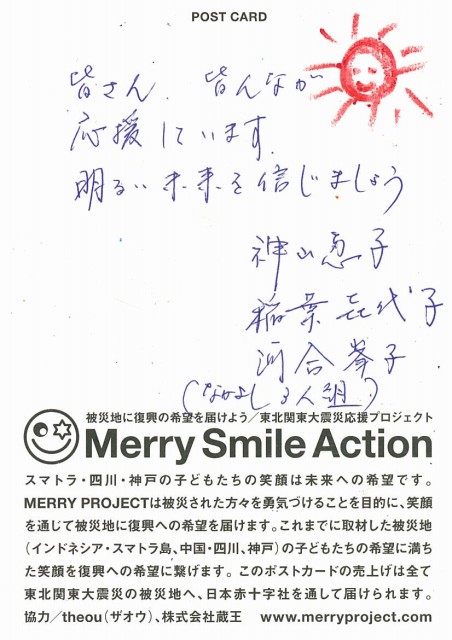 POST CARD
皆さん 皆んなが
応援しています
明るい未来を信じましょう
神山恵子
稲葉喜代子
河合峯子
(なかよし3人組)
被災地に復興の希望を届けよう/東北関東大震災応援プロジェクト
Merry Smile Action
スマトラ・四川・神戸の子どもたちの笑顔は未来への希望です。
MERRY PROJECTは被災された方々を勇気づけることを目的に、笑顔
を通じて被災地に復興への希望を届けます。これまでに取材した被災地
(インドネシア・スマトラ島、中国・四川、神戸)の子どもたちの希望に満ち
た笑顔を復興への希望に繋げます。このポストカードの売上げは全て
東北関東大震災の被災地へ、日本赤十字社を通して届けられます。
協力/theou(ザオウ)、株式会社蔵王 www.merryproject.com